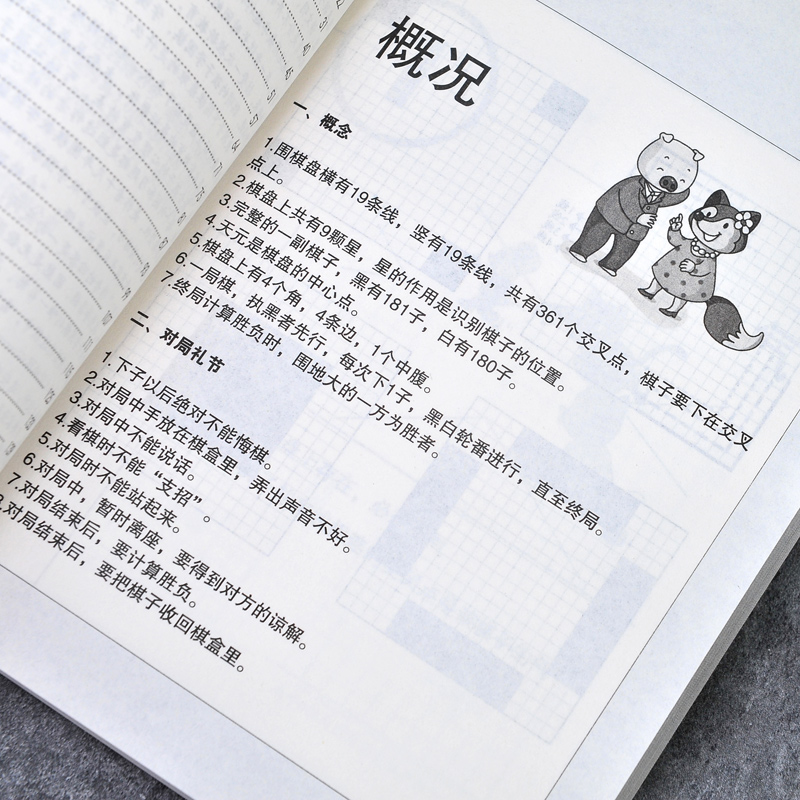 概况
一、概念
1.围棋盘横有19条线，竖有19条线，共有361个交叉点，棋子要下在交叉
点上。
2.棋盘上共有9颗星，星的作用是识别棋子的位置。
3.完整的一副棋子，黑有181子，白有180子。
4.天元是棋盘的中心点。
5.棋盘上有4个角，4条边，1个中腹。
6.一局棋，执黑者先行，每次下1子，黑白轮番进行，直至终局。
7.终局计算胜负时，围地大的一方为胜者。
二、对局礼节
1.下子以后绝对不能悔棋。
2.对局中手放在棋盒里，弄出声音不好。
3.对局中不能说话。
4.看棋时不能“支招”。
5.对局时不能站起来。
6.对局中，暂时离座，要得到对方的谅解。
7.对局结束后，要计算胜负。
8.对局结束后，要把棋子收回棋盒里。